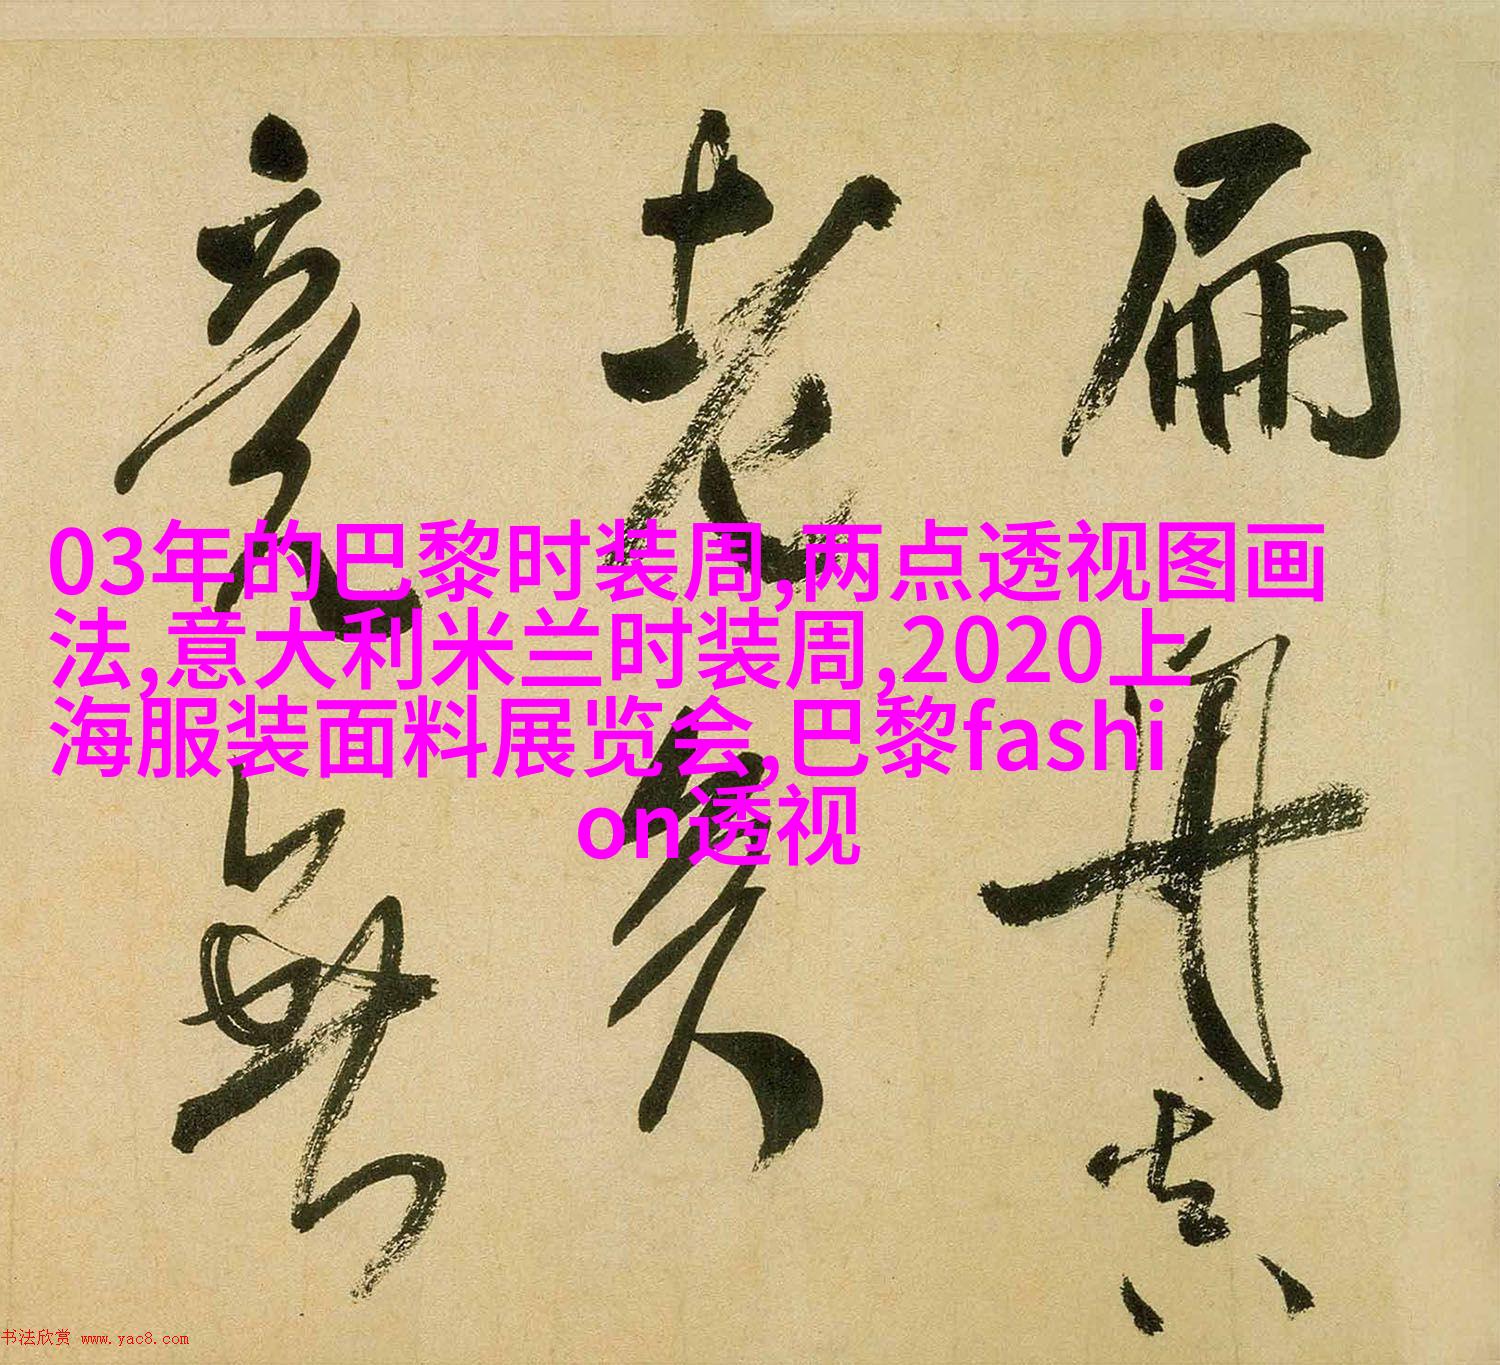 03年的巴黎时装周,两点透视图画
法,意大利米兰时装周,2020上
海服装面料展览会,巴黎fashi
on透视
扁舟
老矣
無
书法欣赏 www.yac8.com